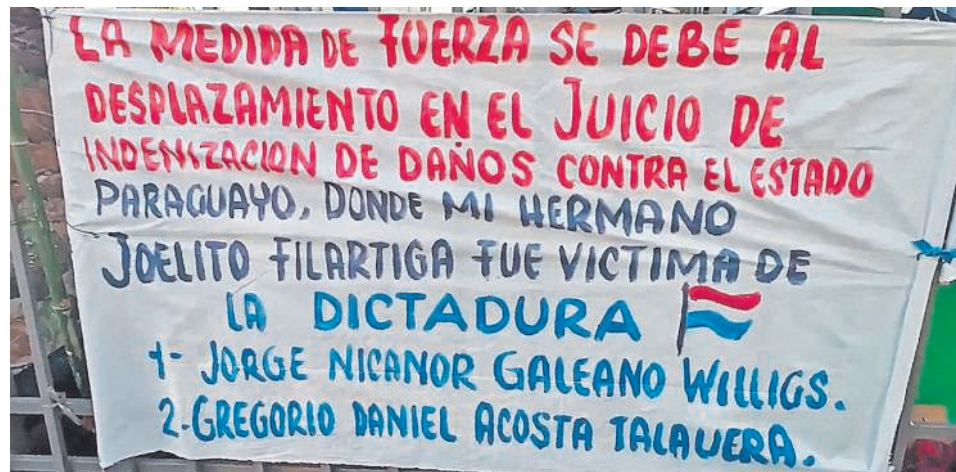 LA MEDIDA DE FUERZA SE DEBE AL
DESPLAZAMIENTO EN EL JUICIO DE
INDENIZACION DE DAÑOS CONTRA EL ESTADO
PARAGUAYO, DONDE MI HERMANO
JOELITO FILARTIGA FUE VICTIMA DE
LA DICTADURA
1- JORGE NICANOR GALEANO WILLIGS.
2.- GREGORIO DANIEL ACOSTA TALAVERA.